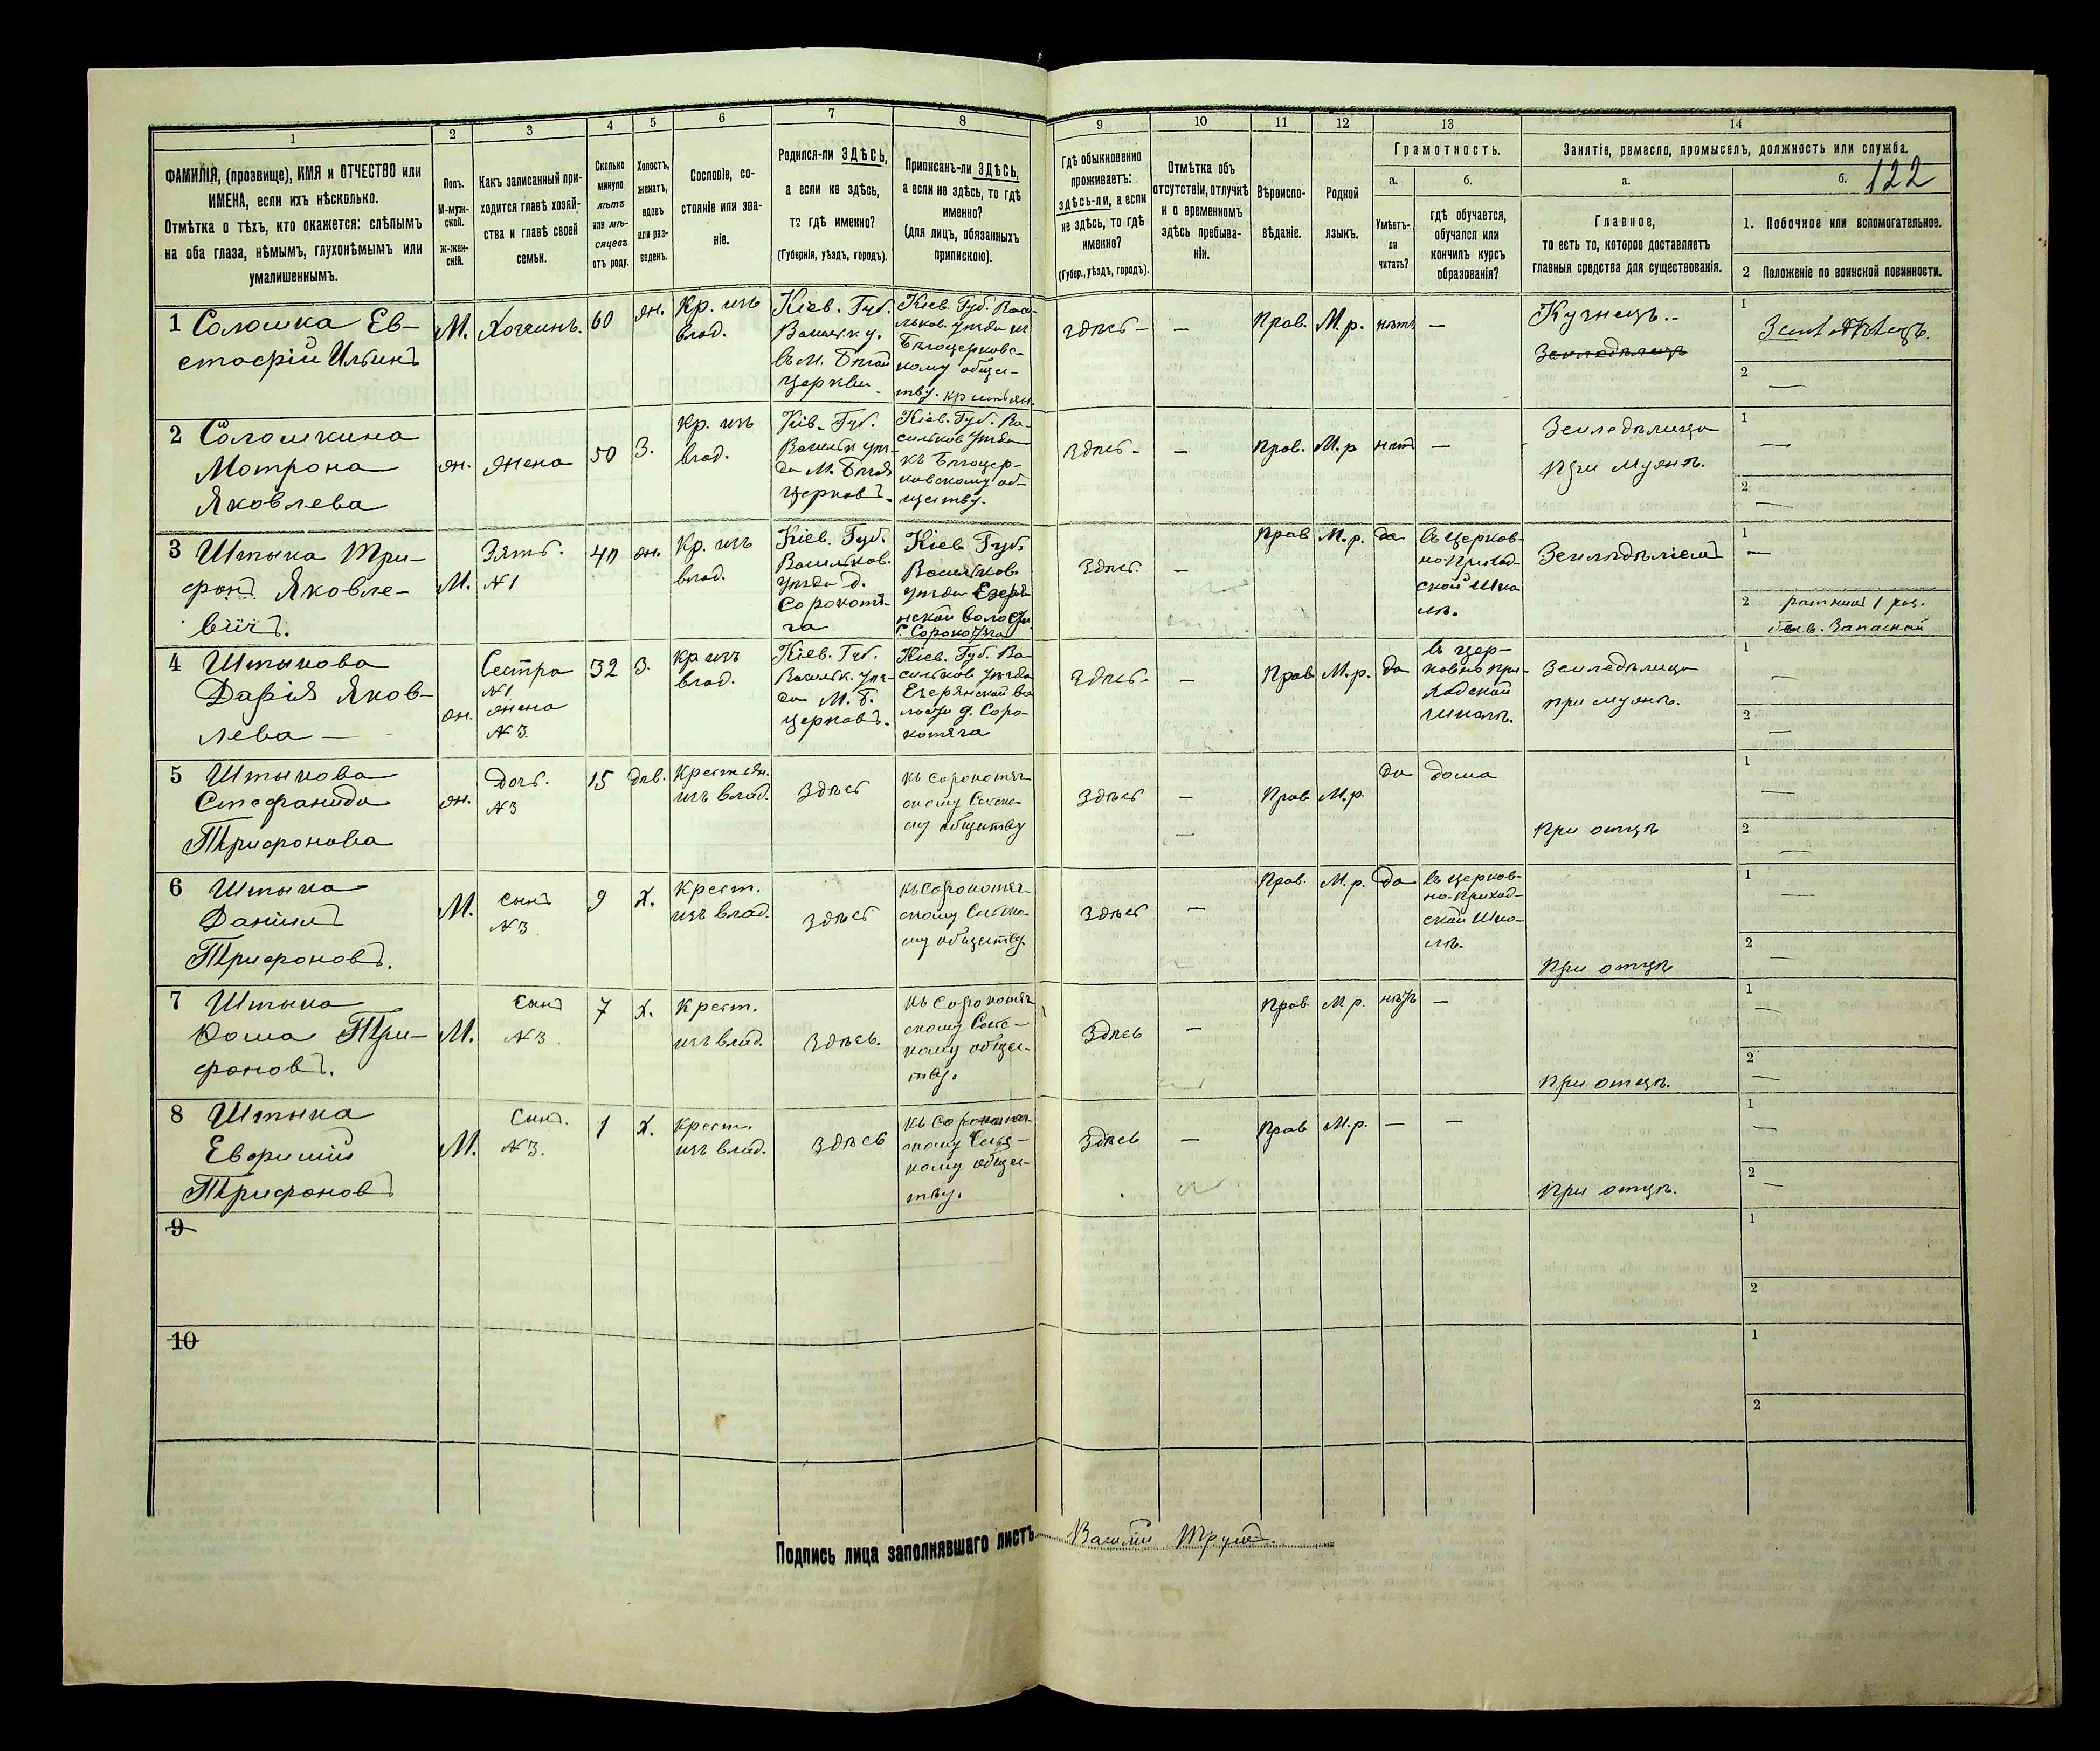 1 2 3 4 5 6 7 8 9 10 11 12 13 14
ФАМИЛІЯ, (прозвище), ИМЯ и ОТЧЕСТВО или
ИМЕНА, если ихъ нѣсколько.
Отмѣтка о тѣхъ, кто окажется: слѣпымъ
на оба глаза, нѣмымъ, глухонѣмымъ или
умалишеннымъ.
Полъ.
М-муж-
ской.
ж-жен-
скій.
Какъ записанный при-
ходится главѣ хозяй-
ства и главѣ своей
семьи.
Сколько
минуло
лѣтъ
или мѣ-
сяцевъ
отъ роду.
Холостъ,
женатъ,
вдовъ
или раз-
веденъ.
Сословіе, со-
стояніе или зва-
ніе.
Родился-ли ЗДѢСЬ,
а если не здѣсь,
то гдѣ именно?
(Губернія, уѣздъ, городъ).
Приписанъ-ли ЗДѢСЬ,
а если не здѣсь, то гдѣ
именно?
(для лицъ, обязанныхъ
припискою).
Гдѣ обыкновенно
проживаетъ:
здѣсь-ли, а если
не здѣсь, то гдѣ
именно?
(Губер., уѣздъ, городъ).
Отмѣтка объ
отсутствіи, отлучкѣ
и о временномъ
здѣсь пребыва-
ніи.
Вѣроиспо-
вѣданіе.
Родной
языкъ.
Грамотность.
а.
Умѣетъ-
ли
читать?
б.
гдѣ обучается,
обучался или
кончилъ курсъ
образованія?
Занятіе, ремесло, промыселъ, должность или служба.
а.
Главное,
то есть то, которое доставляетъ
главныя средства для существованія.
б. 122
1. Побочное или вспомогательное.
2 Положеніе по воинской повинности.
1 Соломка Ев-
стафій Ильинъ
М.
Хозяинъ.
60
жн.
Кр. изъ
влад.
Кіев. Губ.
Васильк у.
въ М. Бѣлой
Церкви
Кіев. Губ. Васи-
льков. уѣзда къ
Бѣлоцерковс-
кому общес-
тву. крестьян.
здѣсь-
—
Прав.
М. р.
нѣтъ
—
Кузнецъ.-
Земледѣлецъ
1
Земледѣлецъ.
2
—
2 Соломкина
Мотрона
Яковлева
жн.
жена
50
З.
Кр. изъ
влад.
Кіев. Губ.
Васильк уѣз-
да М. Бѣлая
Церковъ.
Кіев. Губ. Ва-
сильков уѣзда
къ Бѣлоцер-
ковскому об-
ществу.
здѣсь-
—
Прав.
М. р
нѣт
—
Земледѣлица
при мужѣ.
1
—
2
—
3 Штыка Три-
фонъ Яковле-
вичъ.
М.
Зять.
№1
40
жн.
Кр. изъ
влад.
Кіев. Губ.
Васильков.
уѣзда д.
Сорокотя-
га
Кіев Губ.
Васильков.
уѣзда Езеря-
нской волости
Здѣсь.
—
Прав
М. р.
да
въ церков-
но Приход-
ской Шко
лѣ.
Земледѣліемъ
1
—
2 ратникъ 1 раз.
Запасной
4 Штыкова
Дарія Яков-
лева —
жн.
Сестра
№1
жена
№ 3.
32
З.
кр изъ
влад.
Кіев. Губ.
Васильк. уѣз-
да М. Б.
Церковъ.
Кіев. Губ. Ва-
сильков уѣзда
Езерянской во
лости д. Соро-
котяга
Здѣсь-
—
Прав
М. р.
да
въ цер-
ковно при-
ходской
школѣ.
Земледѣлица
при мужѣ.
1
—
2
—
5 Штыкова
Стефанида
Трифонова
жн.
Дочь.
№3
15
дѣв.
Крестьян.
изъ влад.
Здѣсь
къ Сорокотяг-
скому Сельско-
му обществу
Здѣсь
—
—
Прав
М. р.
да
дома
При отцѣ
1
—
2
—
6 Штыка
Данiилъ
Трифоновъ.
М.
сынъ
№3
9
Х.
Крест.
изъ влад.
здѣсь
къ Сорокотяг-
скому Сельско-
му обществу.
Здѣсь
—
Прав.
М. р.
да
въ церков-
но-приход-
ской Шко-
лѣ.
При отцѣ
1
—
2
—
7 Штыка
Фома Три-
фоновъ.
М.
сынъ
№3.
7
х.
Крест.
изъ влад.
Здѣсь.
къ Сорокотяг
скому Сельс-
кому общес-
тву.
Здѣсь
—
Прав.
М р.
нѣтъ
—
При отцѣ.
1
—
2
—
8 Штыка
Евфимій
Трифоновъ
М.
Сынъ.
№3.
1
Х.
Крест.
изъ влад.
здѣсь
къ Сорокотяг
скому Сельс-
кому общес-
тву.
Здѣсь
—
Прав
М. р.
—
—
При отцѣ.
1
—
2
—
9
1
2
10
1
2
Подпись лица заполнявшаго листъ Василій